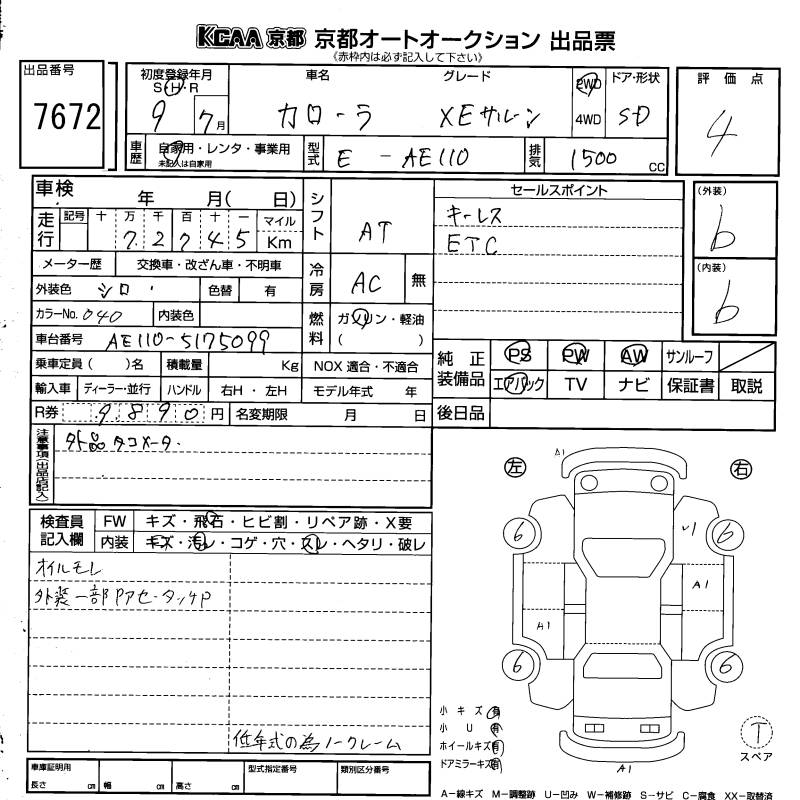 KCAA 京都 京都オートオークション 出品票
《赤枠内は必ず記入して下さい》
出品番号
7672
初度登録年月
S・H・R
9年 7月
車名
カローラ
グレード
XEサルーン
2WD
4WD
ドア・形状
SD
評価点
4
車歴
自家用・レンタ・事業用
未記入は自家用
型式
E-AE110
排気
1500 CC
車検 年 月( 日)
走行
記号 十 万 千 百 十 一 マイル
7 2 7 4 5 Km
メーター歴 交換車・改ざん車・不明車
外装色 シロ
色替 有
カラーNo. 040 内装色
車台番号 AE110-5175099
乗車定員( )名 積載量 Kg
輸入車 ディーラー・並行 ハンドル 右H・左H
R券 9890円 名変期限 月 日
シフト AT
冷房 AC 無
燃料 ガソリン・軽油
( )
NOX 適合・不適合
モデル年式 年
セールスポイント
キーレス
ETC
(外装)
b
(内装)
b
純正装備品
PS PW AW サンルーフ
エアバック TV ナビ 保証書 取説
後日品
注意事項(出品店記入)
外品タコメータ.
検査員記入欄
FW キズ・飛石・ヒビ割・リペア跡・X要
内装 キズ・汚レ・コゲ・穴・スレ・ヘタリ・破レ
オイルモレ
外装一部Pアセ・タッチP
低年式の為ノークレーム
車庫証明用
長さ cm 幅 cm 高さ cm
型式指定番号
類別区分番号
左
右
A1
6
6
6
6
A1
A1
A1
小キズ 有
小U 有
ホイールキズ 有
ドアミラーキズ 有
T
スペア
A-線キズ M-調整跡 U-凹み W-補修跡 S-サビ C-腐食 XX-取替済